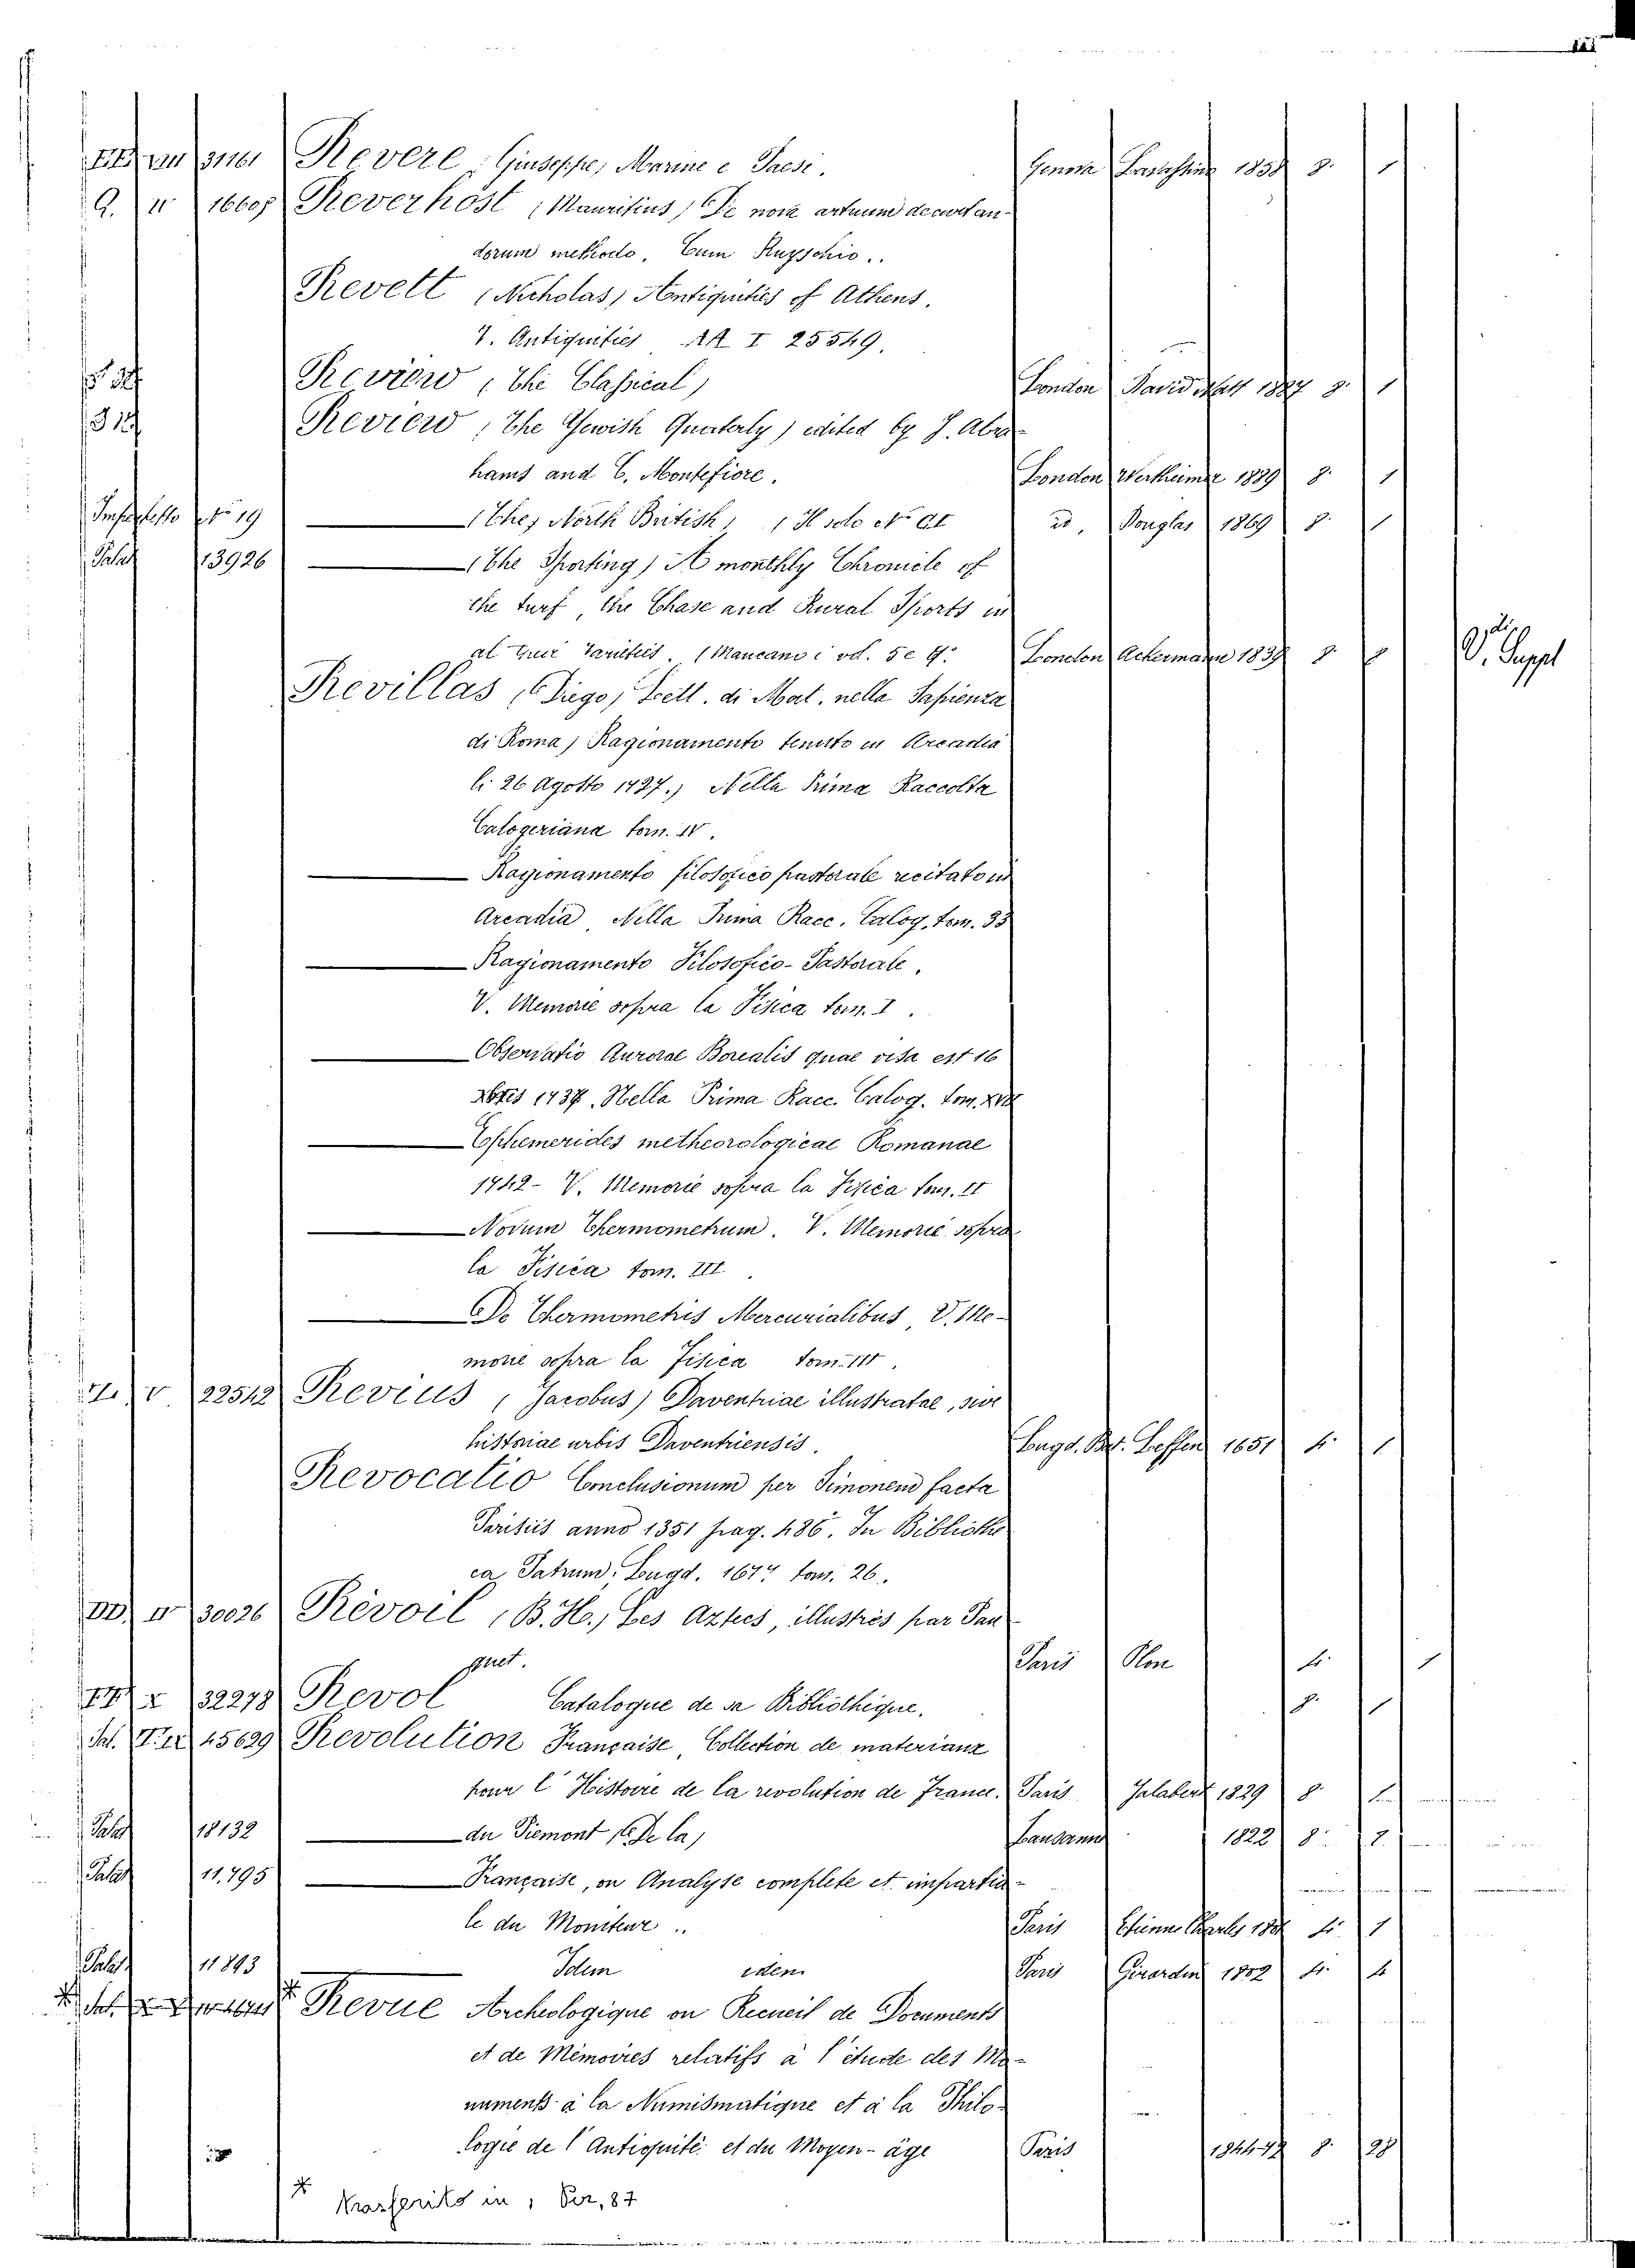 31161 Revere, Giuseppe, Marine e Paesi. Genova 1858 8. 1
Q. II 16605 Reverhost (Mauritius) De nova artuum decurtan-
dorum methodo, Cum Ruyschio..
Revett (Nicholas) Antiquities of Athens.
V. Antiquities AA I 25549.
Review (The Classical) London David Nutt 1887 8. 1
Review (The Jewish Quarterly) edited by J. Abra-
hams and C. Montefiore. London Wertheimer 1889 8. 1
19 (The) North British, id. Douglas 1869 8. 1
Palat 13926 (The Sporting) A monthly Chronicle of
the turf, the Chase and Rural Sports in
al their varieties. (Mancano i vol. 5 e 9. London Ackermann 1839 8. V. Suppl
Revillas (Diego, Lett. di Mat. nella Sapienza
di Roma) Ragionamento tenuto in Arcadia
li 26 Agosto 1727.) Nella Prima Raccolta
Calogeriana tom. IV.
Ragionamento filosofico pastorale recitato in
Arcadia, Nella Prima Racc. Calog. tom. 33
Ragionamento Filosofico-Pastorale.
V. Memorie sopra la Fisica tom. I.
Observatio Aurorae Borealis quae visa est 16
Xbris 1737. Nella Prima Racc. Calog. tom. XVII
Ephemerides metheorologicae Romanae
1742 - V. Memorie sopra la Fisica tom. II
Novum Thermometrum. V. Memorie sopra
la Fisica tom. III.
De Thermometris Mercurialibus, V. Me-
morie sopra la Fisica tom. III.
V 22542 Revius (Jacobus) Daventriae illustratae, sive
historiae urbis Daventriensis. Lugd. Bat. Leffen 1651 4. 1.
Revocatio Conclusionum per Simonem facta
Parisiis anno 1351 pag. 486. In Bibliothe
ca Patrum. Lugd. 1677 tom. 26.
DD. IV 30026 Révoil (B. H.) Les Aztecs, illustrés par Pau
quet. Paris Plon 4. 1
X 32278 Revol Catalogue de sa Bibliothèque. 8. 1
45629 Revolution Française, Collection de materiaux
pour l'Histoire de la revolution de France. Paris Jalabert 1829 8 1
Palat 18132 du Piemont (De la) Lausanne 1822 8. 2
Palat 11.795 Française, ou Analyse complete et impartia-
le du Moniteur.. Paris Etienne Charles 1801 4. 1
Palat 11893 Idem idem Paris Girardin 1802 4. 4
Revue Archeologique ou Recueil de Documents
et de Mémoires relatifs à l'étude des Mo-
numents à la Numismatique et à la Philo-
logie de l'Antiquité et du Moyen-âge Paris 1844-49 8. 28
x Trasferito in, Per, 87